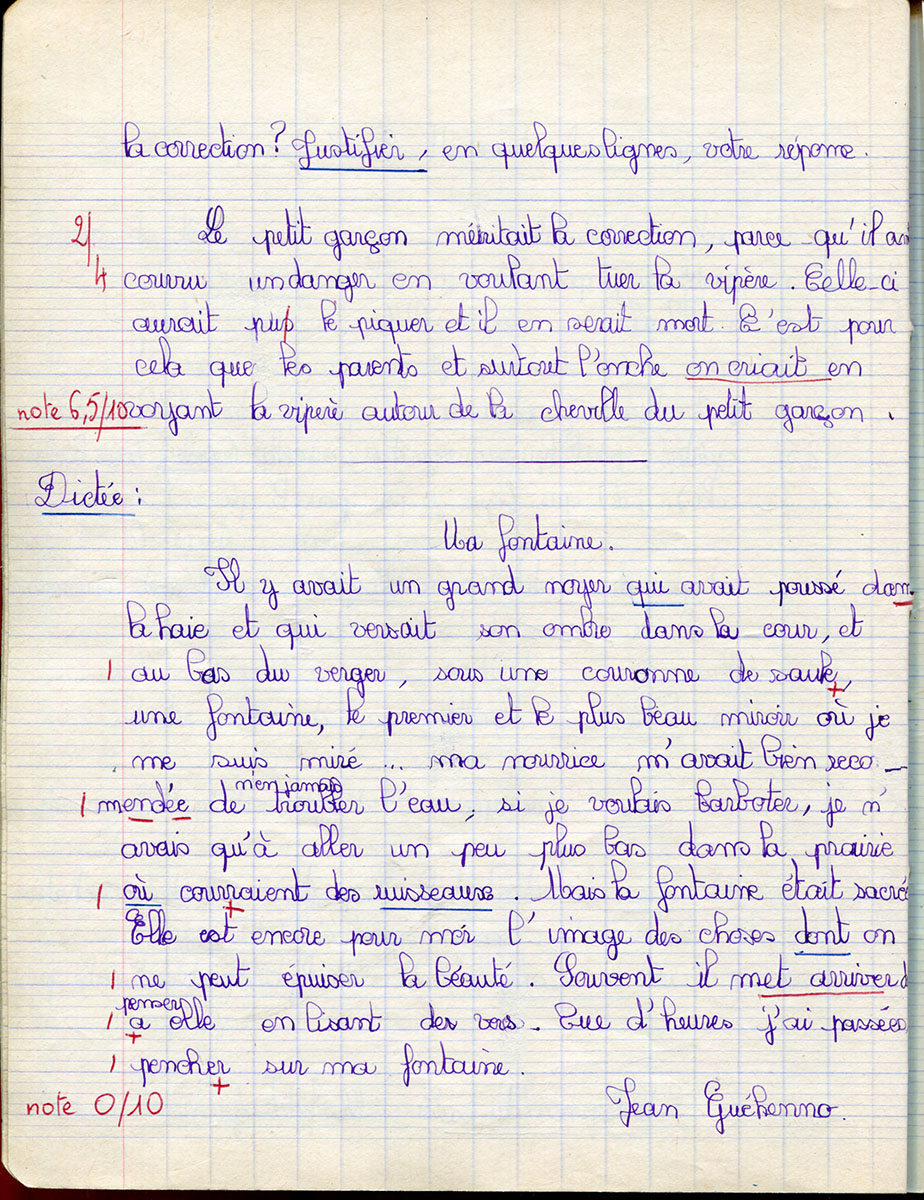 la correction? Justifier, en quelques lignes, votre réponse.
2/4 Le petit garçon méritait la correction, parce qu'il a
couru un danger en voulant tuer la vipère. Celle-ci
aurait pu le piquer et il en serait mort. C'est pour
cela que les parents et surtout l'oncle on criait en
note 6,5/10 voyant la viperè autour de la cheville du petit garçon.
Dictée:
La fontaine.
Il y avait un grand noyer qui avait poussé dans
la haie et qui versait son ombre dans la cour, et
1 au bas du verger, sous une couronne de saule,
une fontaine, le premier et le plus beau miroir où je
me suis miré... ma nourrice m'avait bien reco-
1 mendée de n'en jamais troubler l'eau, si je voulais barboter, je n'
avais qu'à aller un peu plus bas dans la prairie
1 où courraient des ruisseaux. Mais la fontaine était sacré
Elle est encore pour moi l'image des choses dont on
1 ne peut épuiser la béauté. Souvent il met arriver d
penser
1 a elle en lisant des vers. Que d'heures j'ai passées
1 pencher sur ma fontaine.
note 0/10 Jean Guéhenno.